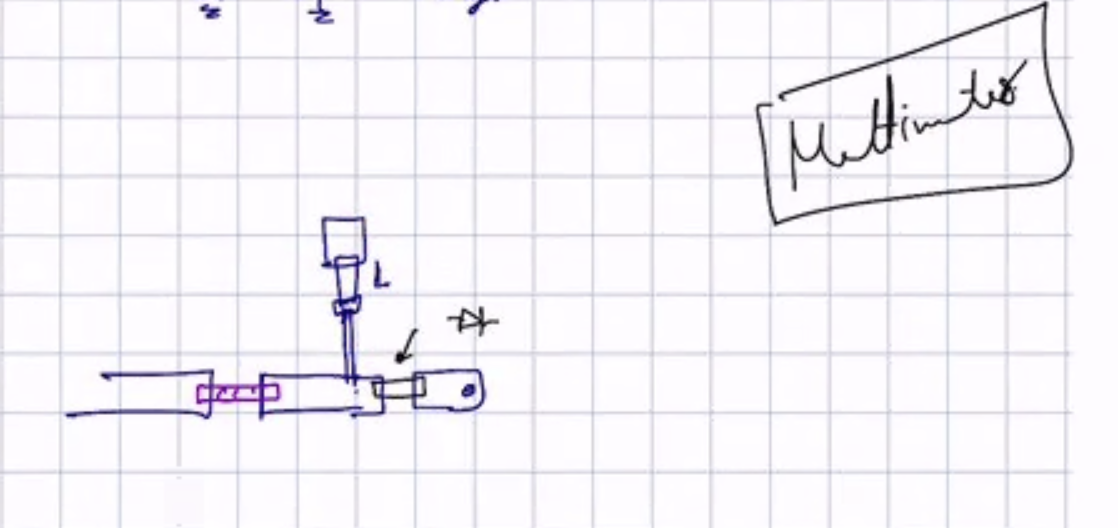 Multimeter
L